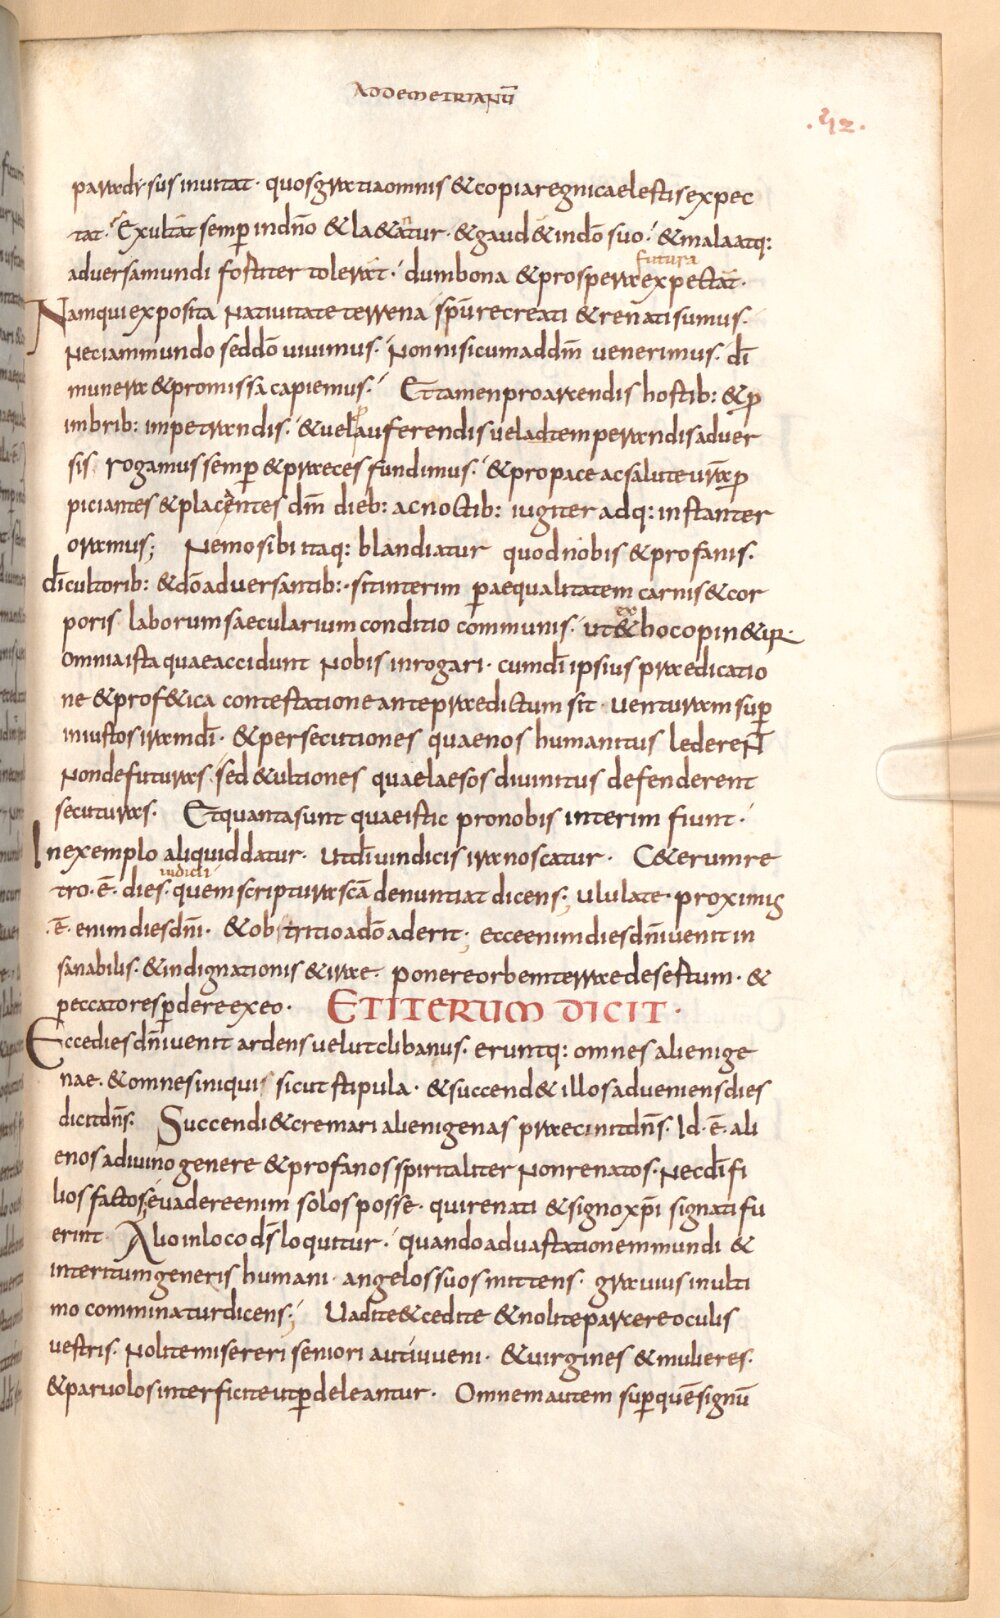 AD DEMETRIANŪ
.42.
paradisus inuitat · quos gratia omnis & copia regni caelestis expec
tat · Exultāt semp̄ in dn̄o & la&antur · & gaud& in dō suo · & mala atq:
aduersa mundi fortiter tolerāt · dum bona & prospera futura expectāt ·
Nam qui exposita natiuitate terrena sp̄u recreati & renati sumus ·
nec iam mundo sed dō uiuimus · Non nisi cum ad dm̄ uenerimus · dī
munera & promissa capiemus · Et tamen pro arcendis hostib: & p̄
imbrib: impetrandis · & uel auferendis uel ad temperandis aduer
sis rogamus semp̄ & praeces fundimus · & pro pace ac salute ur̄a p̄
piciantes & placentes dm̄ dieb: ac noctib: iugiter adq: instanter
oramus; Nemo sibi itaq: blandiatur quod nobis & profanis ·
dī cultorib: & dō aduersantib: · sit interim p̄ aequalitatem carnis & cor
poris laborum saecularium conditio communis · ut ex hoc opin&ur
omnia ista quae accidunt nobis inrogari · cum dī ipsius praedicatio
ne & prof&ica contestatione ante praedictum sit · uenturam sup̄
iniustos iram dī · & persecutiones quae nos humanitus lederent
non defuturas · sed & ultiones quae laesos diuinitus defenderent
secuturas · Et quanta sunt quae istic pro nobis interim fiunt ·
In exemplo aliquid datur · Ut dī uindicis ira noscatur · C&erum re
tro · ē · dies · iudicii quem scriptura scā denuntiat dicens; ululate · proximus
· ē · enim dies dn̄i · & obtritio a dō aderit; ecce enim dies dn̄i uenit in
sanabilis · & indignationis & irae · ponere orbem terrae desertum · &
peccatores p̄dere ex eo · ET ITERUM DICIT ·
Ecce dies dn̄i uenit ardens uelut clibanus · eruntq: omnes alienige
nae · & omnes iniqui sicut stipula · & succend& illos adueniens dies
dicit dn̄s · Succendi & cremari alienigenas praecinit dn̄s · Id · ē · ali
enos a diuino genere & profanos spiritaliter non renatos · nec dī fi
lios factos; euadere enim solos posse · qui renati & signo xp̄i signati fu
erint · Alio in loco dī loquitur · quando ad uastationem mundi &
interitum generis humani · angelos suos mittens · grauius in ulti
mo comminatur dicens; Uadite & cedite & nolite parcere oculis
uestris · Nolite misereri seniori aut iuueni · & uirgines & mulieres ·
& paruolos interficite ut p̄deleantur · Omnem autem sup̄ quē signū